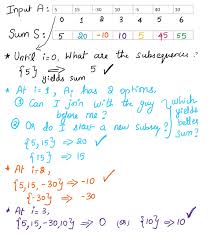 Input A: 5 15 -30 10 -5 40 10
0 1 2 3 4 5 6
Sum S: 5 20 -10 10 5 45 55
* Until i=0, What are the subsequences?
{5} ⇒ 5 ✓
yields sum
* At i=1, A has 2 options,
① Can I join with the guy before me?
② Or do I start a new subseq?
which yields better sum?
{5,15} ⇒ 20 ✓
{15} ⇒ 15
* At i=2,
{5,15,-30} ⇒ -10 ✓
{-30} ⇒ -30
* At i=3,
{5,15,-30,10} ⇒ 0 (or) {10} ⇒ 10 ✓